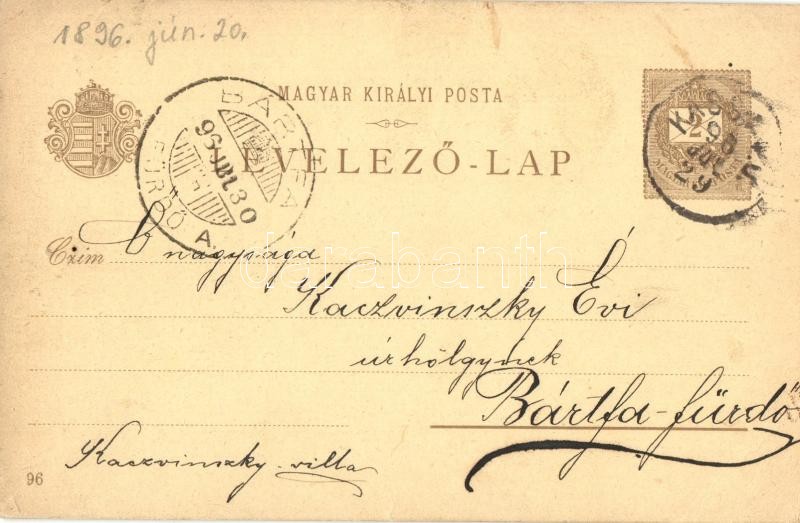 1896. jún. 20.
MAGYAR KIRÁLYI POSTA
LEVELEZŐ-LAP
BÁRTFA
96 JUL 30
FÜRDŐ A.
KASSA
96
JUL
29
Czim
Ő nagysága
Kaczvinszky Évi
úrhölgynek
Bártfa-fürdő
Kaczvinszky-villa
96
darabanth